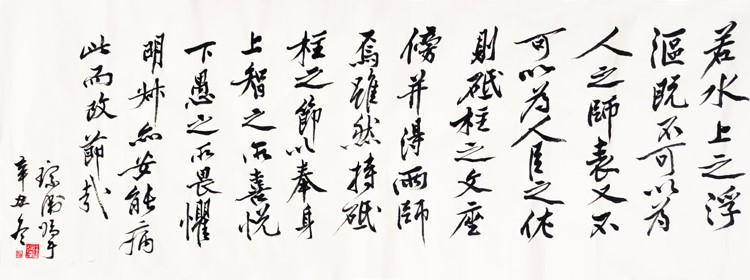 若水上之浮
漚既不可以為
人之師表又不
可以為人臣之佐
則砥柱之文座
傍并得兩師
焉雖然持砥
柱之節以奉身
上智之所喜悦
下愚之所畏懼
明叔亦安能病
此而改節哉
辛丑冬